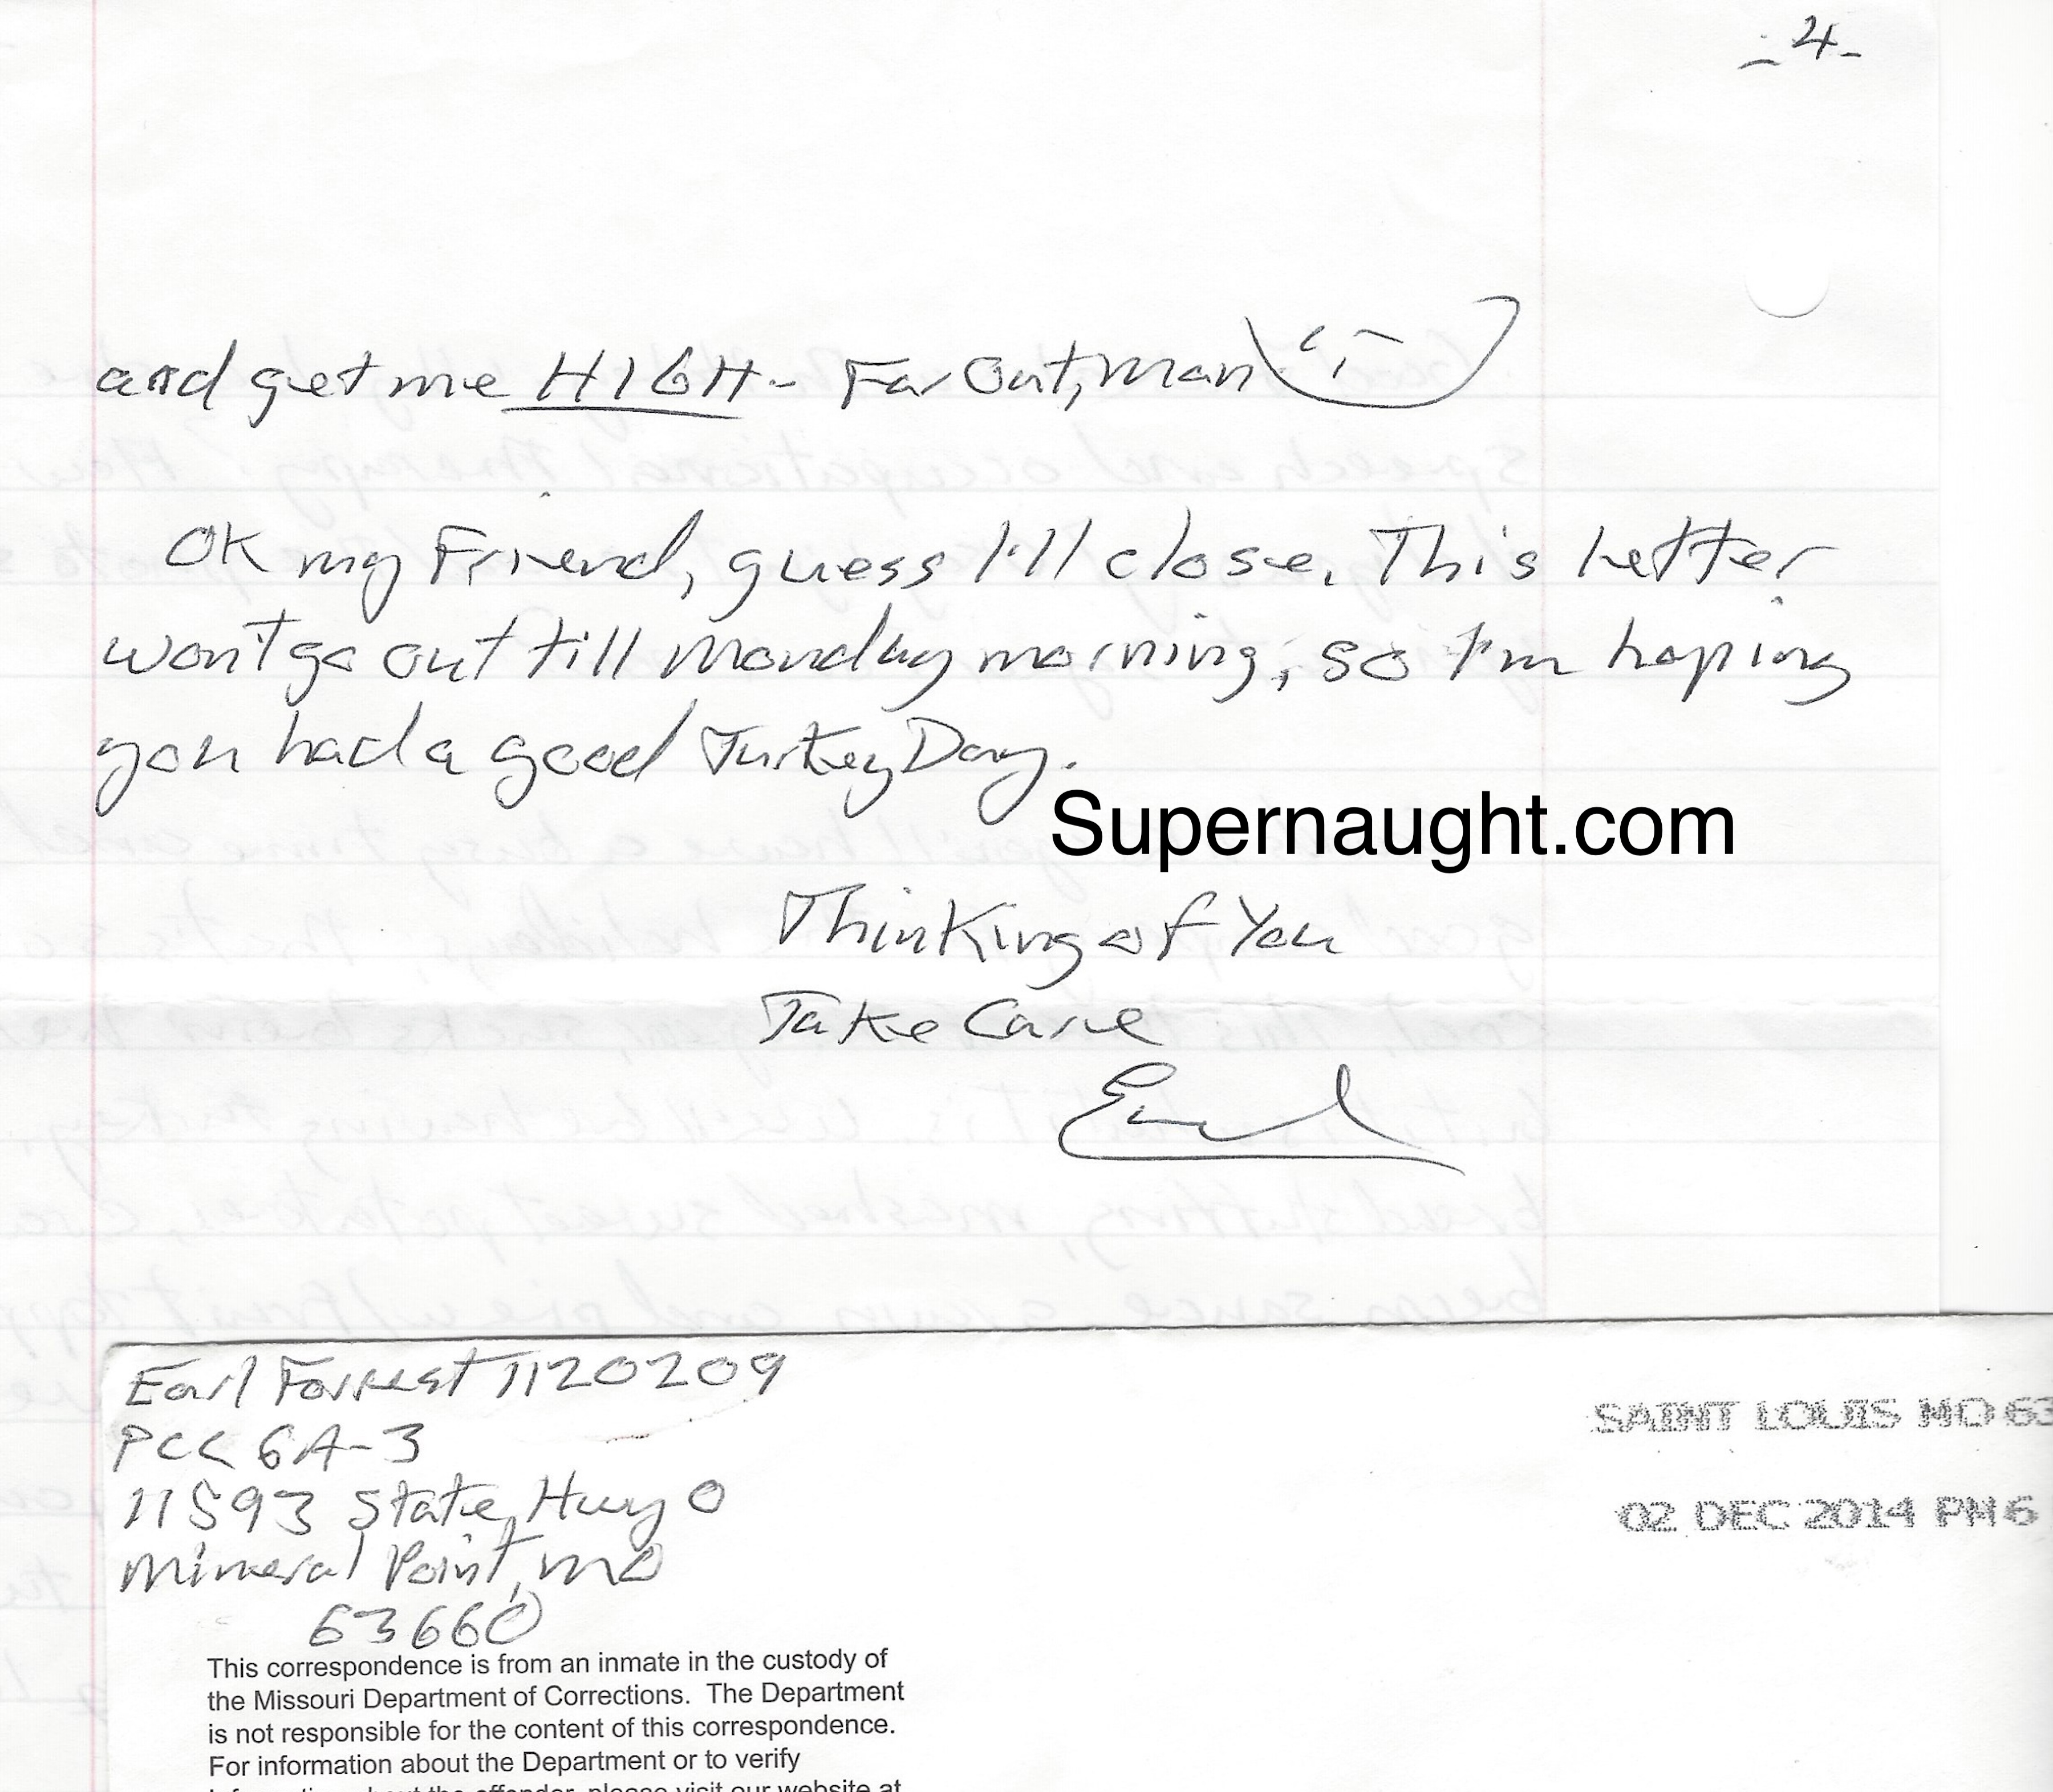 -4-
and get me HIGH - Far Out, Man
OK my Friend, guess I'll close. This letter
won't go out till Monday morning, so I'm hoping
you had a good Turkey Day.
Supernaught.com
Thinking of You
Take Care
Earl
Earl Forrest 1120209
PCC 6A-3
11593 State Hwy O
Mineral Point, MO
63660
SAINT LOUIS MO 63
02 DEC 2014 PM 6
This correspondence is from an inmate in the custody of
the Missouri Department of Corrections. The Department
is not responsible for the content of this correspondence.
For information about the Department or to verify
information about the offender, please visit our website at